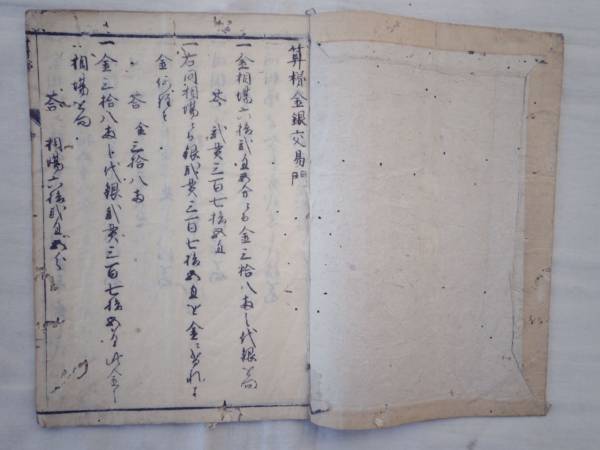 算様金銀交易門
一金相場六拾弐匁五分ニ〆金三拾八両之代銀を問
答 弐貫三百七拾五匁
一右同相場ニ〆銀弐貫三百七拾五匁を金ニ〆
金何程と
答 金三拾八両
一金三拾八両之代銀弐貫三百七拾五匁
相場を問
答 相場六拾弐匁五分